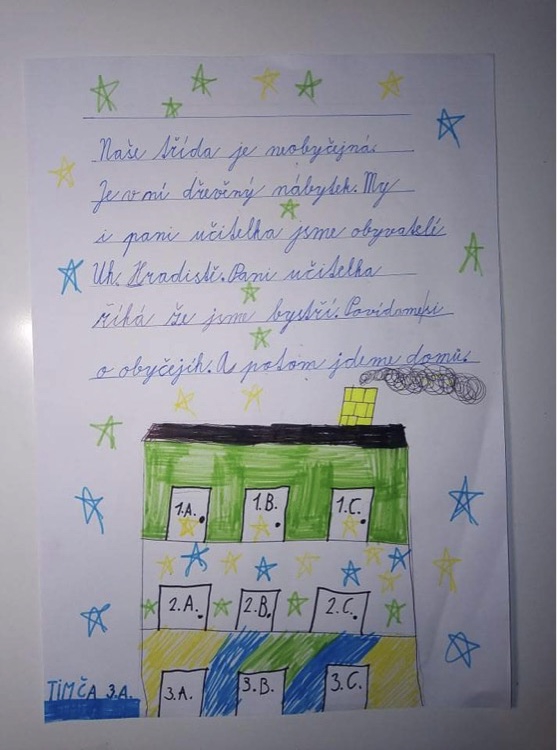 Naše třída je neobyčejná.
Je v ní dřevěný nábytek. My
i pani učitelka jsme obyvatelé
Uh. Hradistě. Pani učitelka
říká že jsme bystří. Povídame si
o obyčejích. A potom jdeme domů.
1.A. 1.B. 1.C.
2.A. 2.B. 2.C.
3.A. 3.B. 3.C.
TIMČA 3.A.